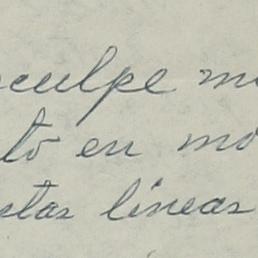 sculpe mi
to en mo
stas líneas